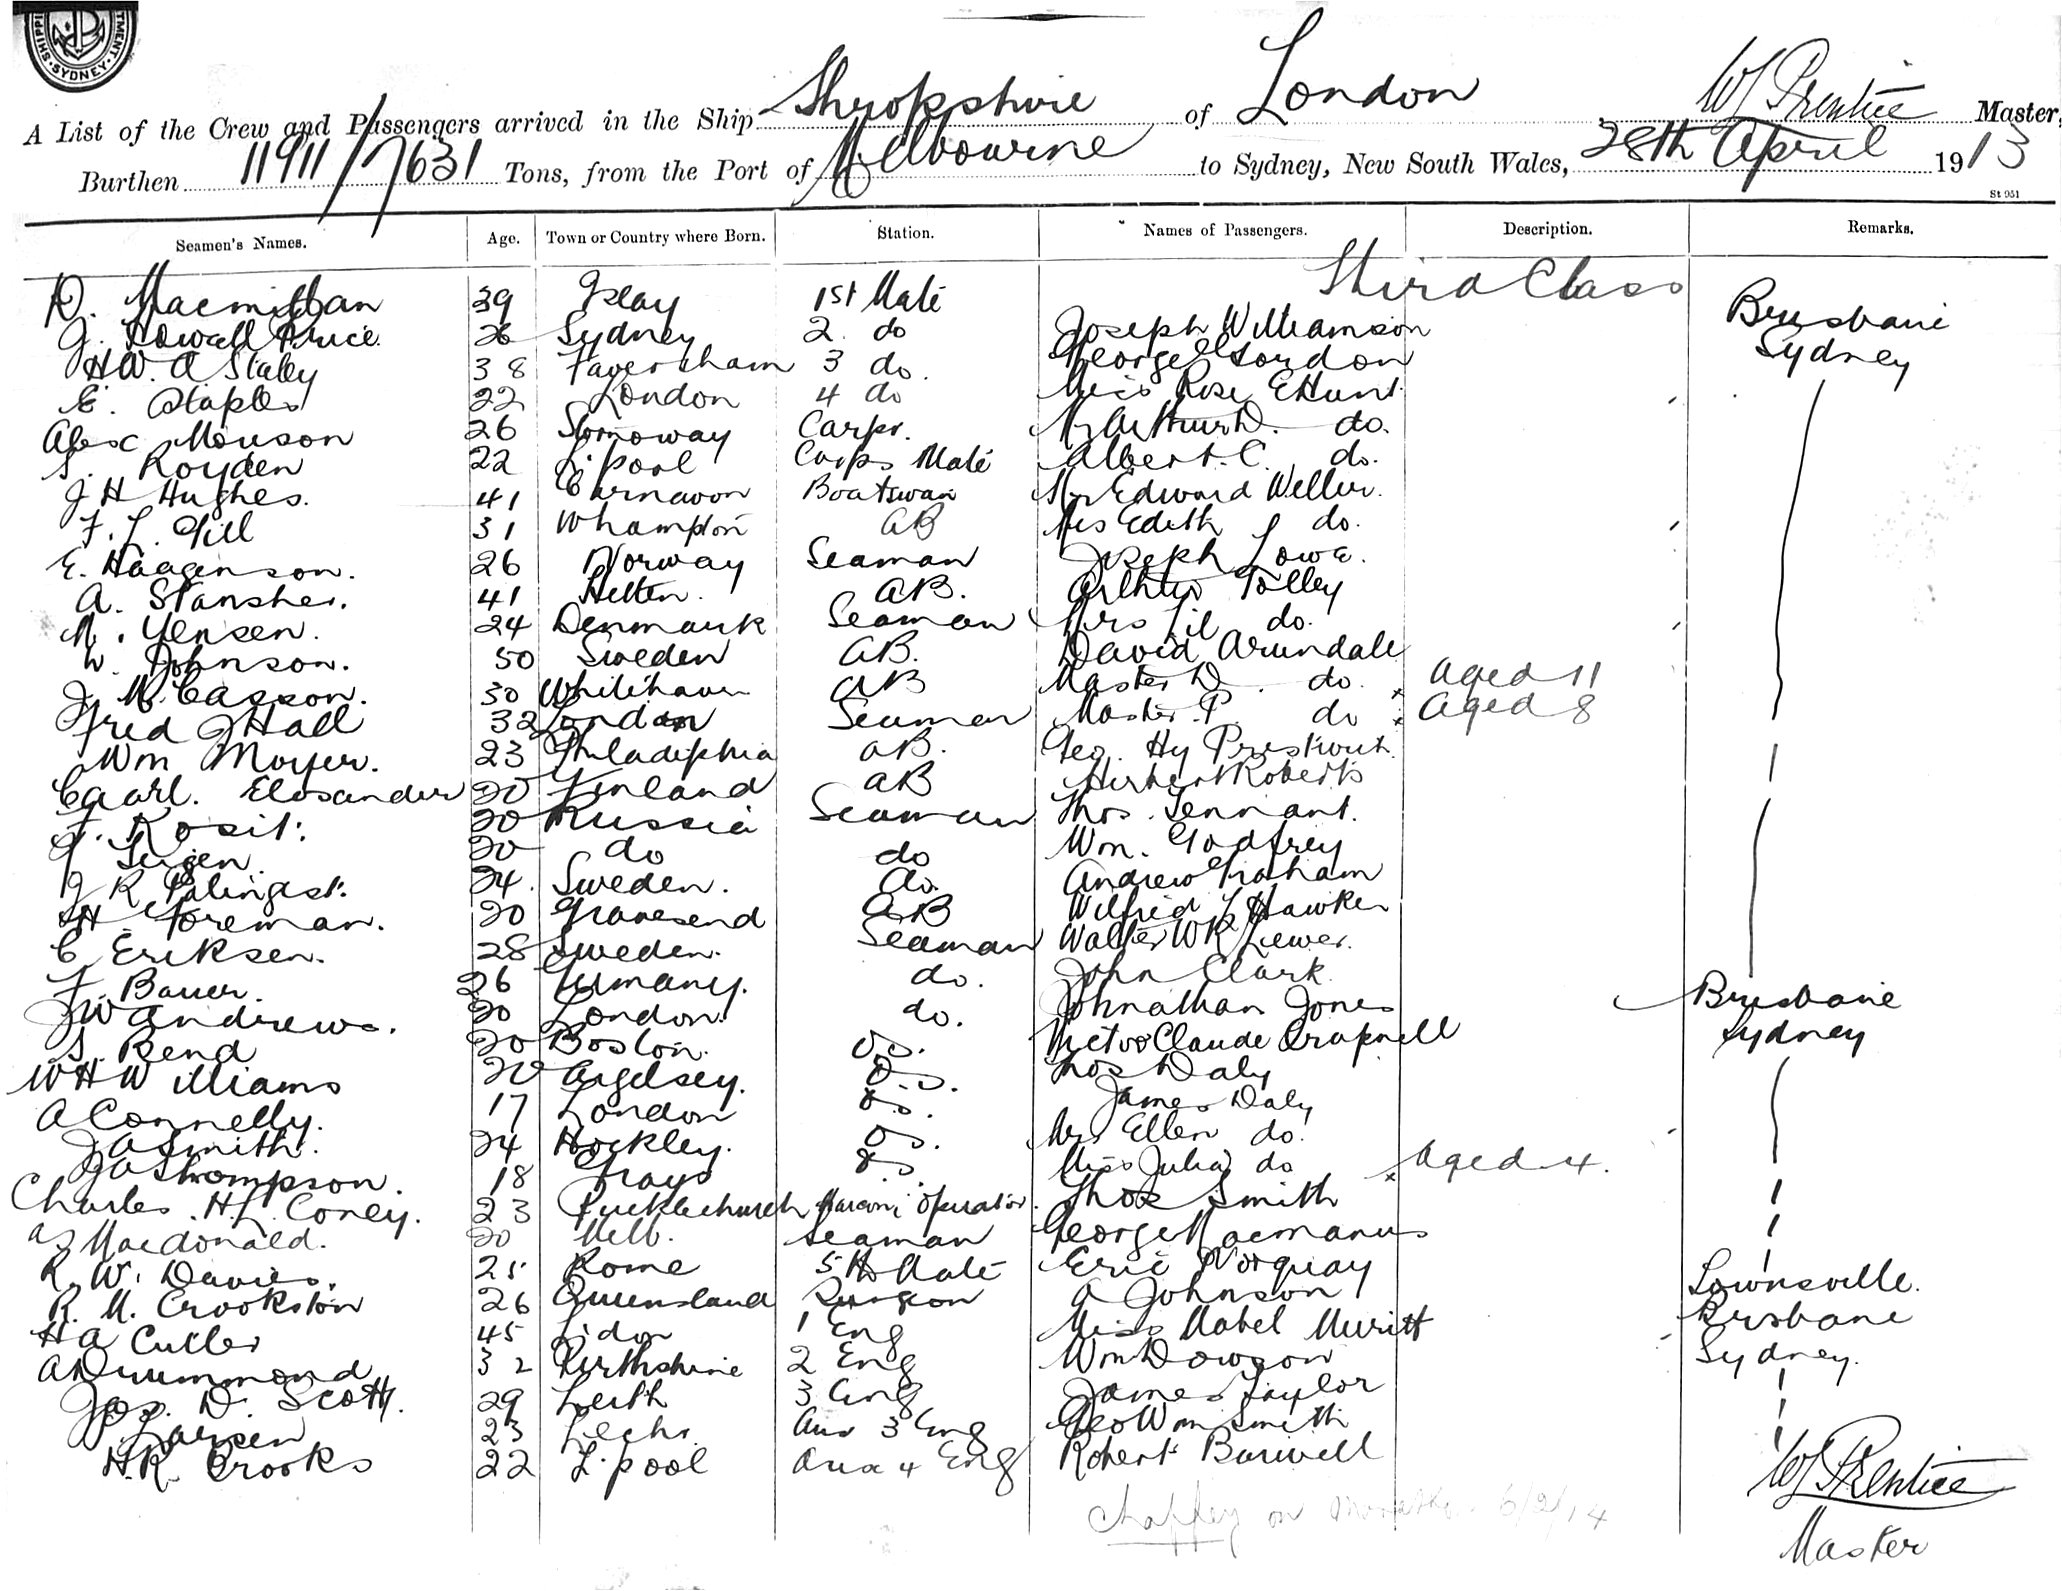 SHIPPING
SYDNEY
A List of the Crew and Passengers arrived in the Ship Shropshire of London W J Prentice Master,
Burthen 11911/7631 Tons, from the Port of Melbourne to Sydney, New South Wales, 28th April 1913
St 951
Seamen's Names. Age. Town or Country where Born. Station. Names of Passengers. Description. Remarks.
Third Class
D. Macmillan 39 Islay 1st Mate Brisbane
J. Howell Price 26 Sydney 2 do Joseph Williamson Sydney
H.W. A Staley 38 Faversham 3 do. George Gordon
E. Staples 22 London 4 do Miss Rose E Hunt
Alex Monson 26 Stornoway Carpr. Mr Arthur D. do.
S. Royden 22 L'pool Carps Mate Albert. C. do.
J H Hughes. 41 Carnavon Boatswain Mr Edward Weller.
F. L. Gill 31 Whampton AB Mrs Edith L do.
E. Haagenson. 26 Norway Seaman Joseph Lowe.
A. Stansher. 41 Hetten. AB. Arthur Tolley
M. Yensen. 24 Denmark Seaman Mrs Lil do.
W. Johnson. 50 Sweden AB. David Arundale
J. McCasson. 30 Whitehaven AB Master D. do. Aged 11
Fred J Hall 32 London Seaman Master P. do Aged 8
Wm Moyer. 23 Philadelphia AB. Geo. Hy
Caarl. 20 Finland AB Herbert Roberts
F. Rosit. 20 Russia Seaman Thos. Tennant.
20 do do Wm. Godfrey
J R 24. Sweden. do. Andrew Graham
H. Foreman. 20 Gravesend AB Wilfred L Hawken
C Eriksen. 28 Sweden. Seaman Walter W R Liewer.
F. Bauer. 26 Germany. do. John Clark.
J W Andrews. 20 London. do. Johnathan Jones Brisbane
S. Rend 20 Boston. O.S. Victor Claude Crapnell Sydney
W H Williams 20 Anglesey. O.S. Thos Daly
A Connelly. 17 London O.S. James Daly
J A Smith. 24 Hockley. O.S. Mrs Ellen do.
J A Thompson. 18 Grays O.S. Miss Julia do Aged 4.
Charles H.L. Coney. 23 Pucklechurch Marconi Operator. Thos Smith
Macdonald. 20 Melb. Seaman George Macmanus
R. W. Davies. 25 Rome 5th Mate Eric Norquay Townsville.
R. M. Crookston 26 Queensland Surgeon A Johnson Brisbane
H A Cutler 45 1 Eng Miss Mabel Merritt Sydney.
A Drummond 32 Perthshire 2 Eng Wm Dowson
Jas. D. Scott. 29 Leith 3 Eng James Taylor
P. Larsen 23 Aux 3 Eng Geo Wm Smith
H.R. Crooks 22 L'pool Aux 4 Eng Robert Burwell
W J Prentice
Chaffey on 6/2/14
Master